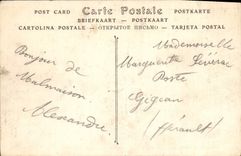 POST CARD Carte Postale POSTKARTE
BRIEFKAART — POSTKAART
CARTOLINA POSTALE — ОТКРЫТОЕ ПИСЬМО — TARJETA POSTAL
Bonjour de
Malmaison
Alexandre
Mademoiselle
Marguerite
Poste
Gigean
(Hérault)